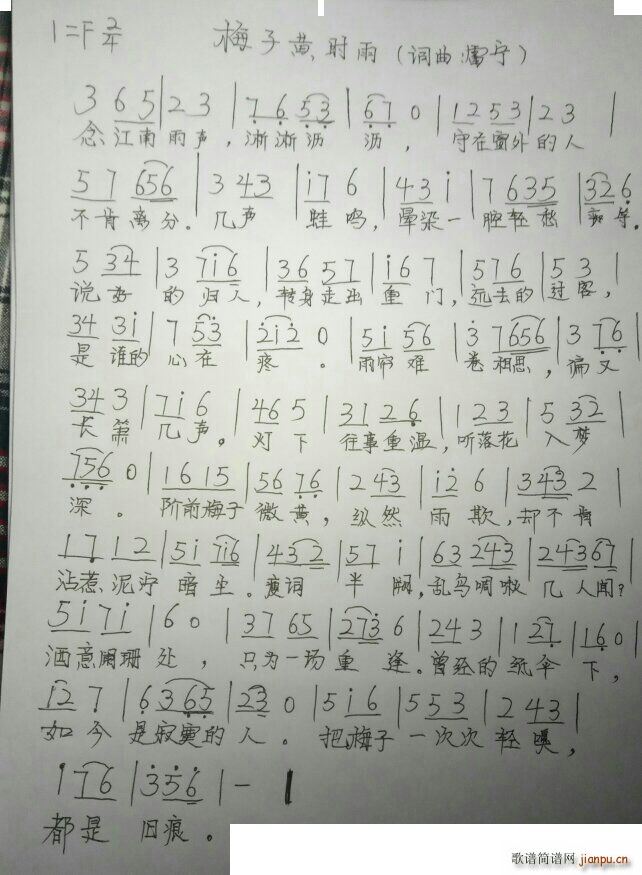 1=F 2/4 梅子黄时雨（词曲:宁）
3 6 5 | 2 3 | 7 6 5 3 | 6 7 0 | 1 2 5 3 | 2 3 |
念江南雨声，淅淅沥沥，守在窗外的人
5 7 6 5 6 | 3 4 3 | i 7 6 | 4 3 i | 7 6 3 5 | 3 2 6 |
不肯离分。几声蛙鸣，晕染一腔轻愁
5 3 4 | 3 7 i 6 | 3 6 5 7 | i 6 7 | 5 7 6 | 5 3 |
说好的归人，转身走出重门，远去的过客，
3 4 3 i | 7 5 3 | 2 i 2 0 | 5 i 5 6 | 3 7 6 5 6 | 3 7 6 |
是谁的心在疼。雨帘难卷相思，偏又
3 4 3 | 7 i 6 | 4 6 5 | 3 1 2 6 | 1 2 3 | 5 3 2 |
长箫几声。灯下往事重温，听落花入梦
7 5 6 0 | 1 6 1 5 | 5 6 7 6 | 2 4 3 | i 2 6 | 3 4 3 2 |
深。阶前梅子微黄，纵然雨欺，却不肯
1 7 1 2 | 5 i 7 i 6 | 4 3 2 | 5 7 i | 6 3 2 4 3 | 2 4 3 6 7 |
沾惹泥泞暗尘。词半阙，乱鸟啁啾几人闻？
5 i 7 i | 6 0 | 3 7 6 5 | 2 7 3 6 | 2 4 3 | 1 2 7 | 1 6 0 |
酒意阑珊处，只为一场重逢。曾经的纸伞下，
i 2 7 | 6 3 6 5 | 2 3 0 | 5 i 6 | 5 5 3 | 2 4 3 |
如今是寂寞的人。把梅子一次次轻嗅，
1 7 6 | 3 5 6 | — |
都是旧痕。
歌谱简谱网
jianpu.cn